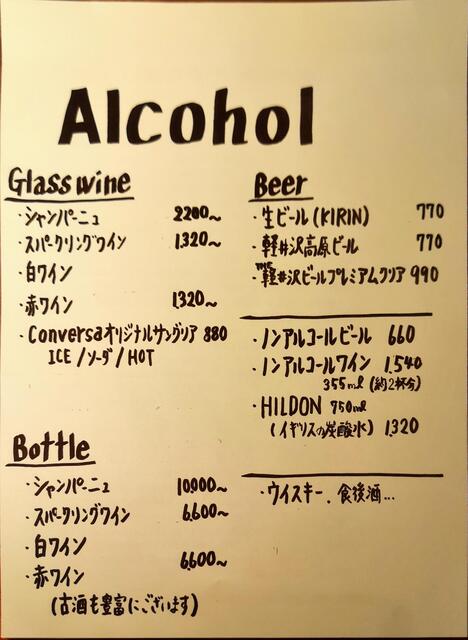 Alcohol
Glass wine
・シャンパーニュ 2200~
・スパークリングワイン 1,320~
・白ワイン
・赤ワイン 1,320~
・Conversaオリジナルサングリア 880
ICE/ソーダ/HOT
Bottle
・シャンパーニュ 10,900~
・スパークリングワイン 6,600~
・白ワイン
・赤ワイン 6,600~
(古酒も豊富にございます)
Beer
・生ビール(KIRIN) 770
・軽井沢高原ビール 770
・THE軽井沢ビールプレミアムクリア 990
・ノンアルコールビール 660
・ノンアルコールワイン 1,540
355ml (約2杯分)
・HILDON 750ml
(イギリスの炭酸水) 1,320
・ウイスキー、食後酒...